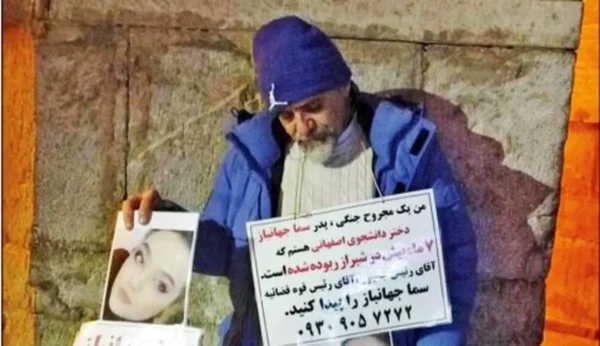 من یک مجروح جنگی ، پدر سما جهانباز
دختر دانشجوی اصفهانی هستم که
۷ ماه پیش در شیراز ربوده شده است.
آقای رئیس آقای رئیس قوه قضائیه
سما جهانباز را پیدا کنید.
۰۹۳۰ ۹۰۵ ۷۲۷۲